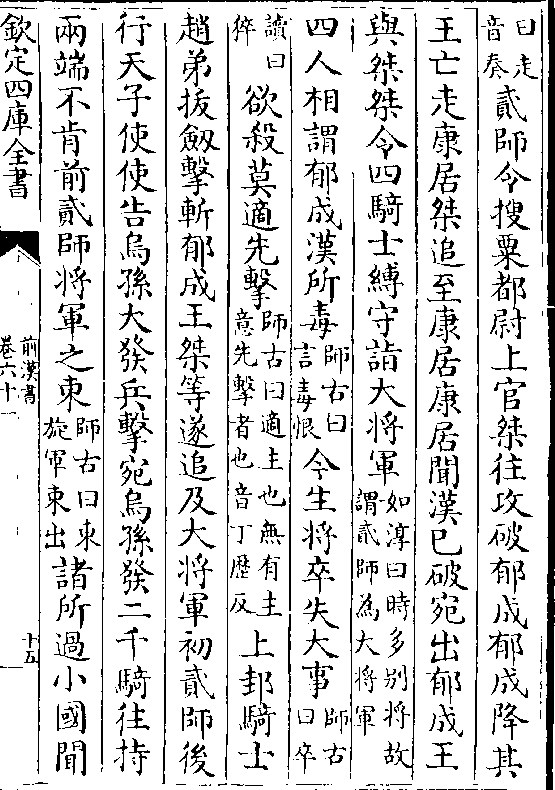 曰走音奏貳師令搜粟都尉上官桀往攻破郁成郁成降其
王亡走康居桀追至康居康居聞漢已破宛出郁成王
與桀桀令四騎士縛守詣大將軍如淳曰時多别將故謂貳師為大將軍
四人相謂郁成漢所毒師古曰言毒恨今生將卒失大事師古曰卒
讀曰猝欲殺莫適先擊師古曰適主也無有主意先擊者也音丁歴反上邽騎士
趙弟拔劔擊斬郁成王桀等遂追及大將軍初貳師後
行天子使使告烏孫大發兵擊宛烏孫發二千騎往持
兩端不肯前貳師將軍之東師古曰東旋軍東出諸所過小國聞
欽定四庫全書
前漢書
卷六十一
十五